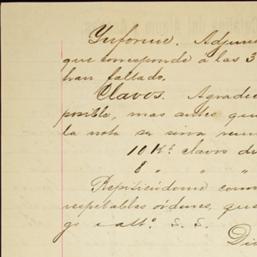 Informe. Adjun
que corresponde á las 3
han faltado.
Clavos. Agradec
posible, mas antes que
la nota se sirva
10 Ks. clavos de
8 " "
Repitiéndome como
respetables órdenes, que
go e atto. S. S.
Di